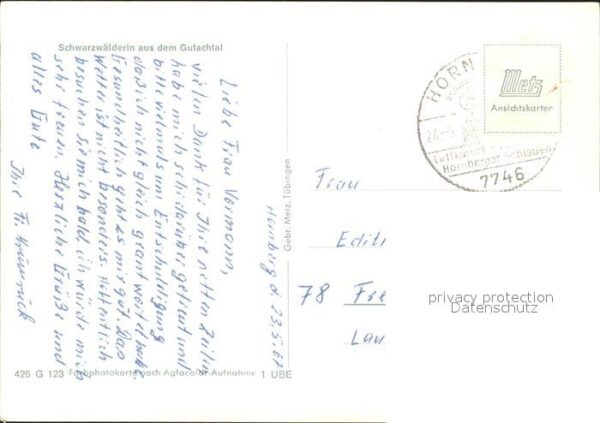 Schwarzwälderin aus dem Gutachtal
Hornberg d. 23.5.67
Liebe Frau Vormann,
vielen Dank für Ihre netten Zeilen
habe mich sehr darüber gefreut und
bitte vielmals um Entschuldigung
daß ich nicht gleich geantwortet habe.
Gesundheitlich geht es mir gut. Das
Wetter ist nicht besonders. Hoffentlich
besuchen Sie mich bald, ich würde mich
sehr freuen. Herzliche Grüße und
alles Gute
Ihre Fr.
426 G 123 Farbphotokarte nach Agfacolor-Aufnahme 1 UBE
Gebr. Metz, Tübingen
HORN
Luftkurort
Hornberger Schießen
7746
Metz
Ansichtskarten
Frau
Edit
78 Fre
Lau
privacy protection
Datenschutz